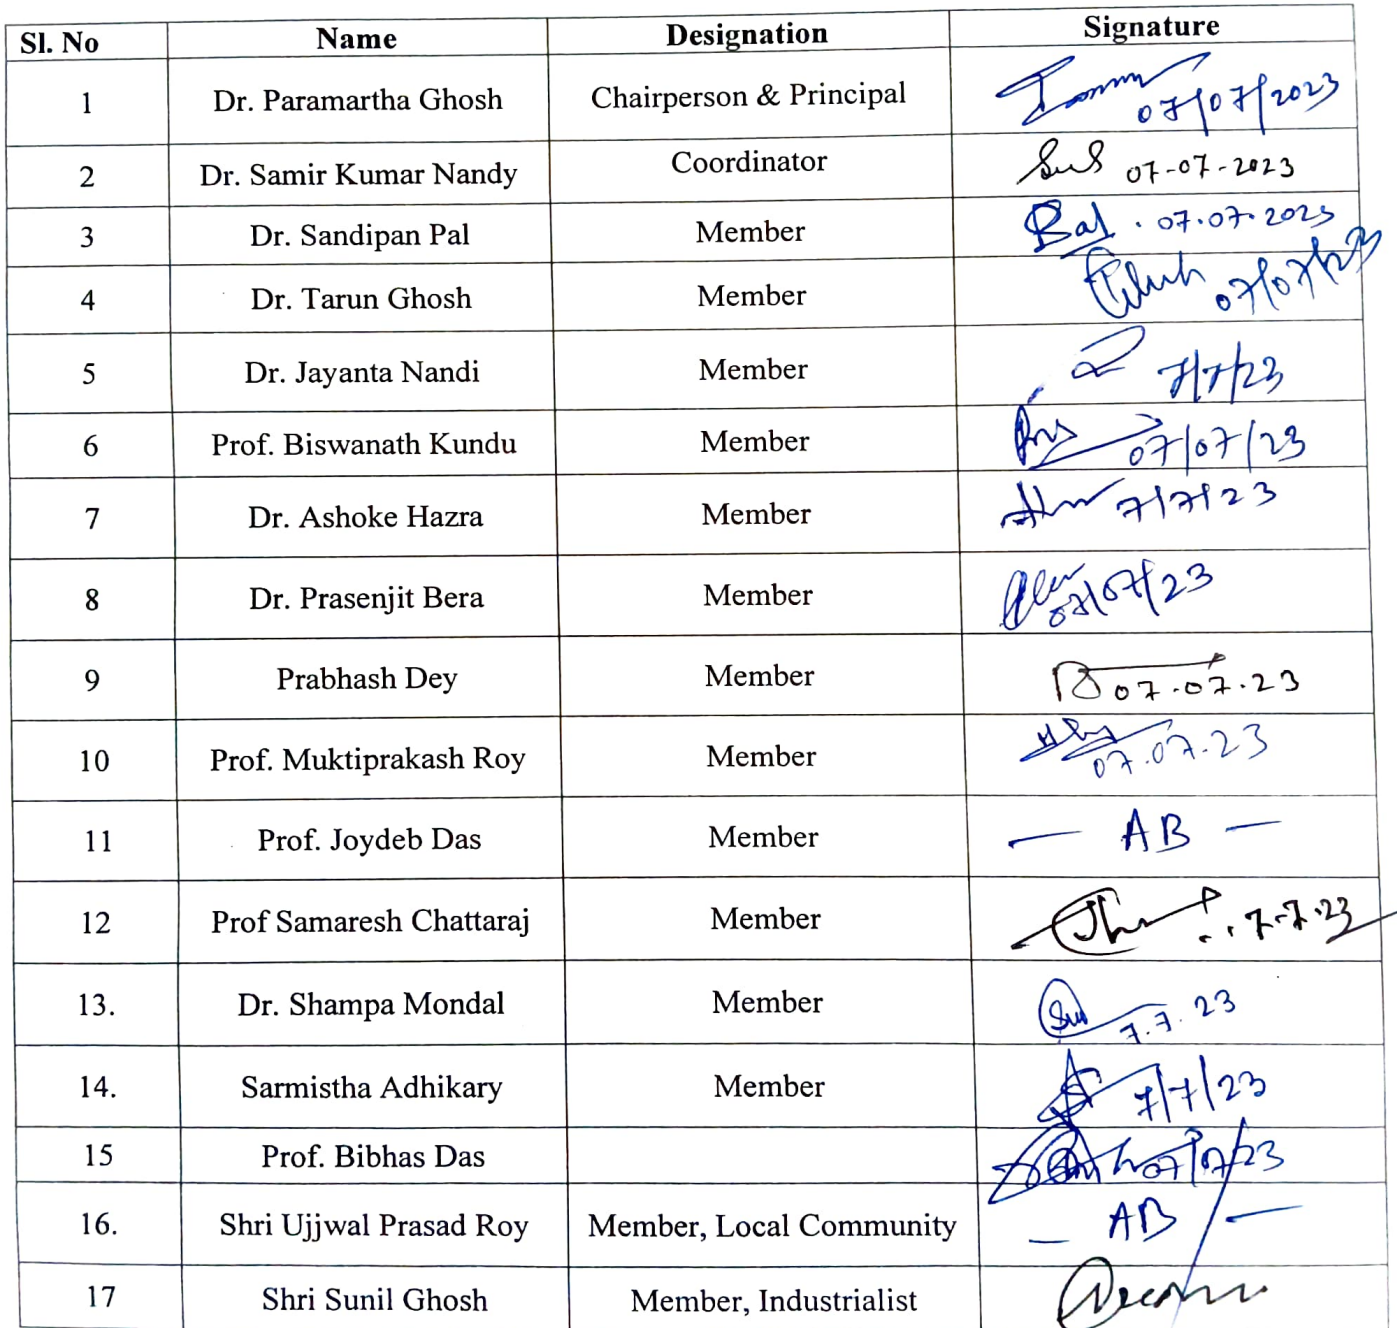 Sl. No Name Designation Signature
1 Dr. Paramartha Ghosh Chairperson & Principal 07/07/2023
2 Dr. Samir Kumar Nandy Coordinator 07-07-2023
3 Dr. Sandipan Pal Member 07.07.2023
4 Dr. Tarun Ghosh Member 07/07/23
5 Dr. Jayanta Nandi Member 7/7/23
6 Prof. Biswanath Kundu Member 07/07/23
7 Dr. Ashoke Hazra Member 7/7/23
8 Dr. Prasenjit Bera Member 07/07/23
9 Prabhash Dey Member 07.07.23
10 Prof. Muktiprakash Roy Member 07.07.23
11 Prof. Joydeb Das Member — AB —
12 Prof Samaresh Chattaraj Member 7.7.23
13. Dr. Shampa Mondal Member 7.7.23
14. Sarmistha Adhikary Member 7/7/23
15 Prof. Bibhas Das 07/7/23
16. Shri Ujjwal Prasad Roy Member, Local Community — AB —
17 Shri Sunil Ghosh Member, Industrialist